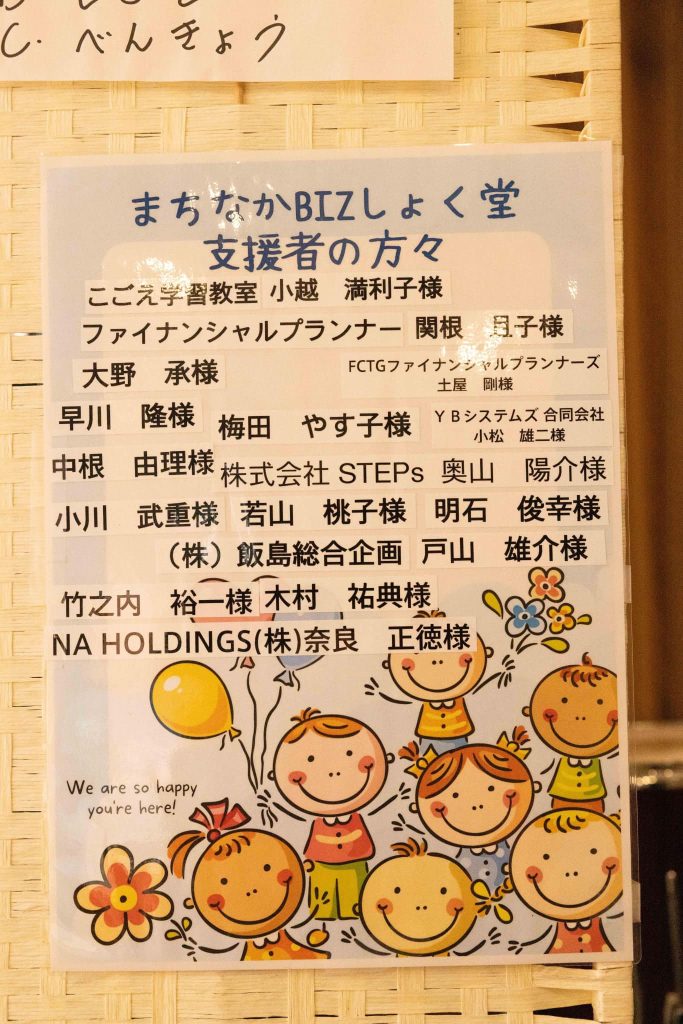 C. べんきょう
まちなかBIZしょく堂
支援者の方々
こごえ学習教室 小越 満利子様
ファイナンシャルプランナー 関根 且子様
大野 承様 FCTGファイナンシャルプランナーズ
土屋 剛様
早川 隆様 梅田 やす子様 YBシステムズ 合同会社
小松 雄二様
中根 由理様 株式会社 STEPs 奥山 陽介様
小川 武重様 若山 桃子様 明石 俊幸様
（株）飯島総合企画 戸山 雄介様
竹之内 裕一様 木村 祐典様
NA HOLDINGS(株)奈良 正徳様
We are so happy
you're here!